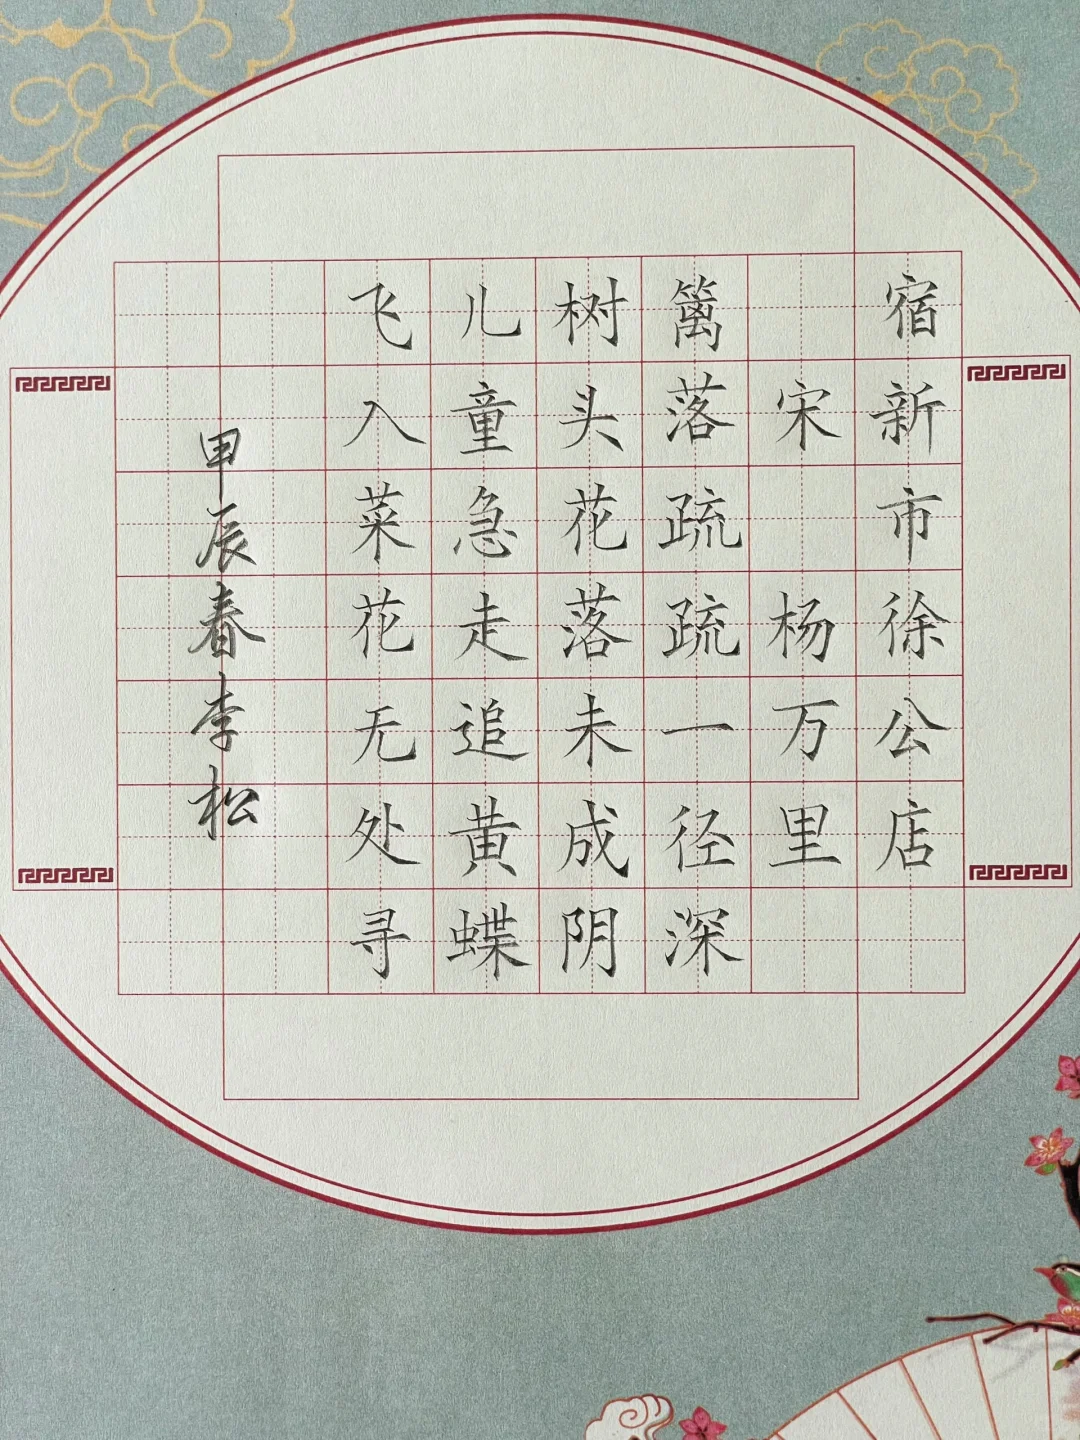 宿新市徐公店
宋 杨万里
篱落疏疏一径深
树头花落未成阴
儿童急走追黄蝶
飞入菜花无处寻
甲辰春李松